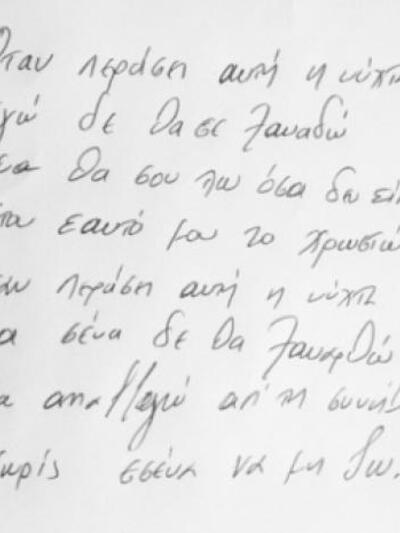 Όταν περάσει αυτή η νύχτα
εγώ δε θα σε ξαναδώ
θα σου πω όσα δεν
εαυτό μου το χρωστώ
περάσει αυτή η νύχτα
σένα δε θα ξαναρθώ
απαλλαγώ απ' τη
χωρίς εσένα να μη ζω.